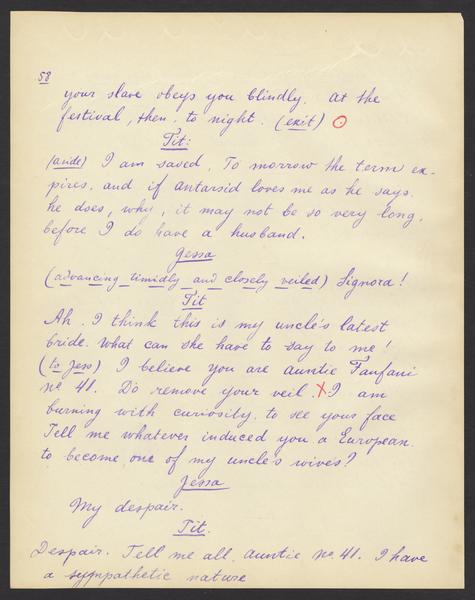 58
your slave obeys you blindly. At the
festival, then. to night. (exit)
Tit:
(aside) I am saved. To morrow the term ex-
pires. and if Antarsid loves me as he says.
he does, why, it may not be so very long.
before I do have a husband.
Jessa
(advancing timidly and closely veiled) Signora!
Tit
Ah. I think this is my uncle's latest
bride. What can she have to say to me!
(to Jess) I believe you are auntie Fanfani
No 41. Do remove your veil. X I am
burning with curiosity. to see your face
Tell me whatever induced you a European.
to become one of my uncle's wives?
Jessa
My despair.
Tit.
Despair. Tell me all, auntie No. 41. I have
a sympathetic nature